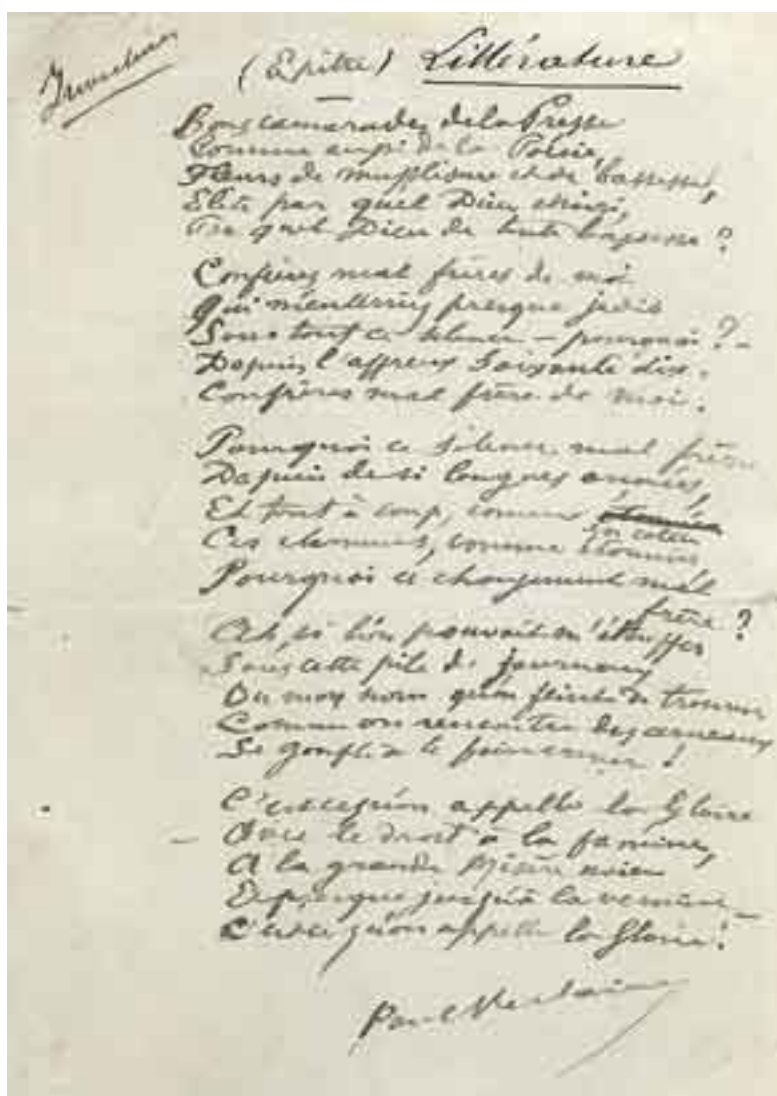 (Epître) Littérature
Bons camarades de la Presse
Comme aussi de la Poésie,
Fleurs de et de bassesse,
Elite par quel Dieu choisi,
Par quel Dieu de toute ?
Confrères mal frères de moi
Qui m'enterriez presque jadis
Sous tout ce silence – pourquoi ? –
Depuis l'affreux Soixante dix.
Confrères mal frères de moi.
Pourquoi ce silence mal frère
Depuis de si longues années,
Et tout à coup, comme en colère
Ces clameurs, comme étonnées
Pourquoi ce changement mal
frère ?
Ah, si l'on pouvait m'étouffer
Sous cette pile de journaux
Où mon nom qu'on feint de trouver
Comme on rencontre des cerneaux
Se gonfle à le !
C'est ce qu'on appelle la Gloire
– Avec le droit à la famine,
A la grande Misère noire
Et presque jusqu'à la vermine –
C'est ce qu'on appelle la Gloire !
Paul Verlaine